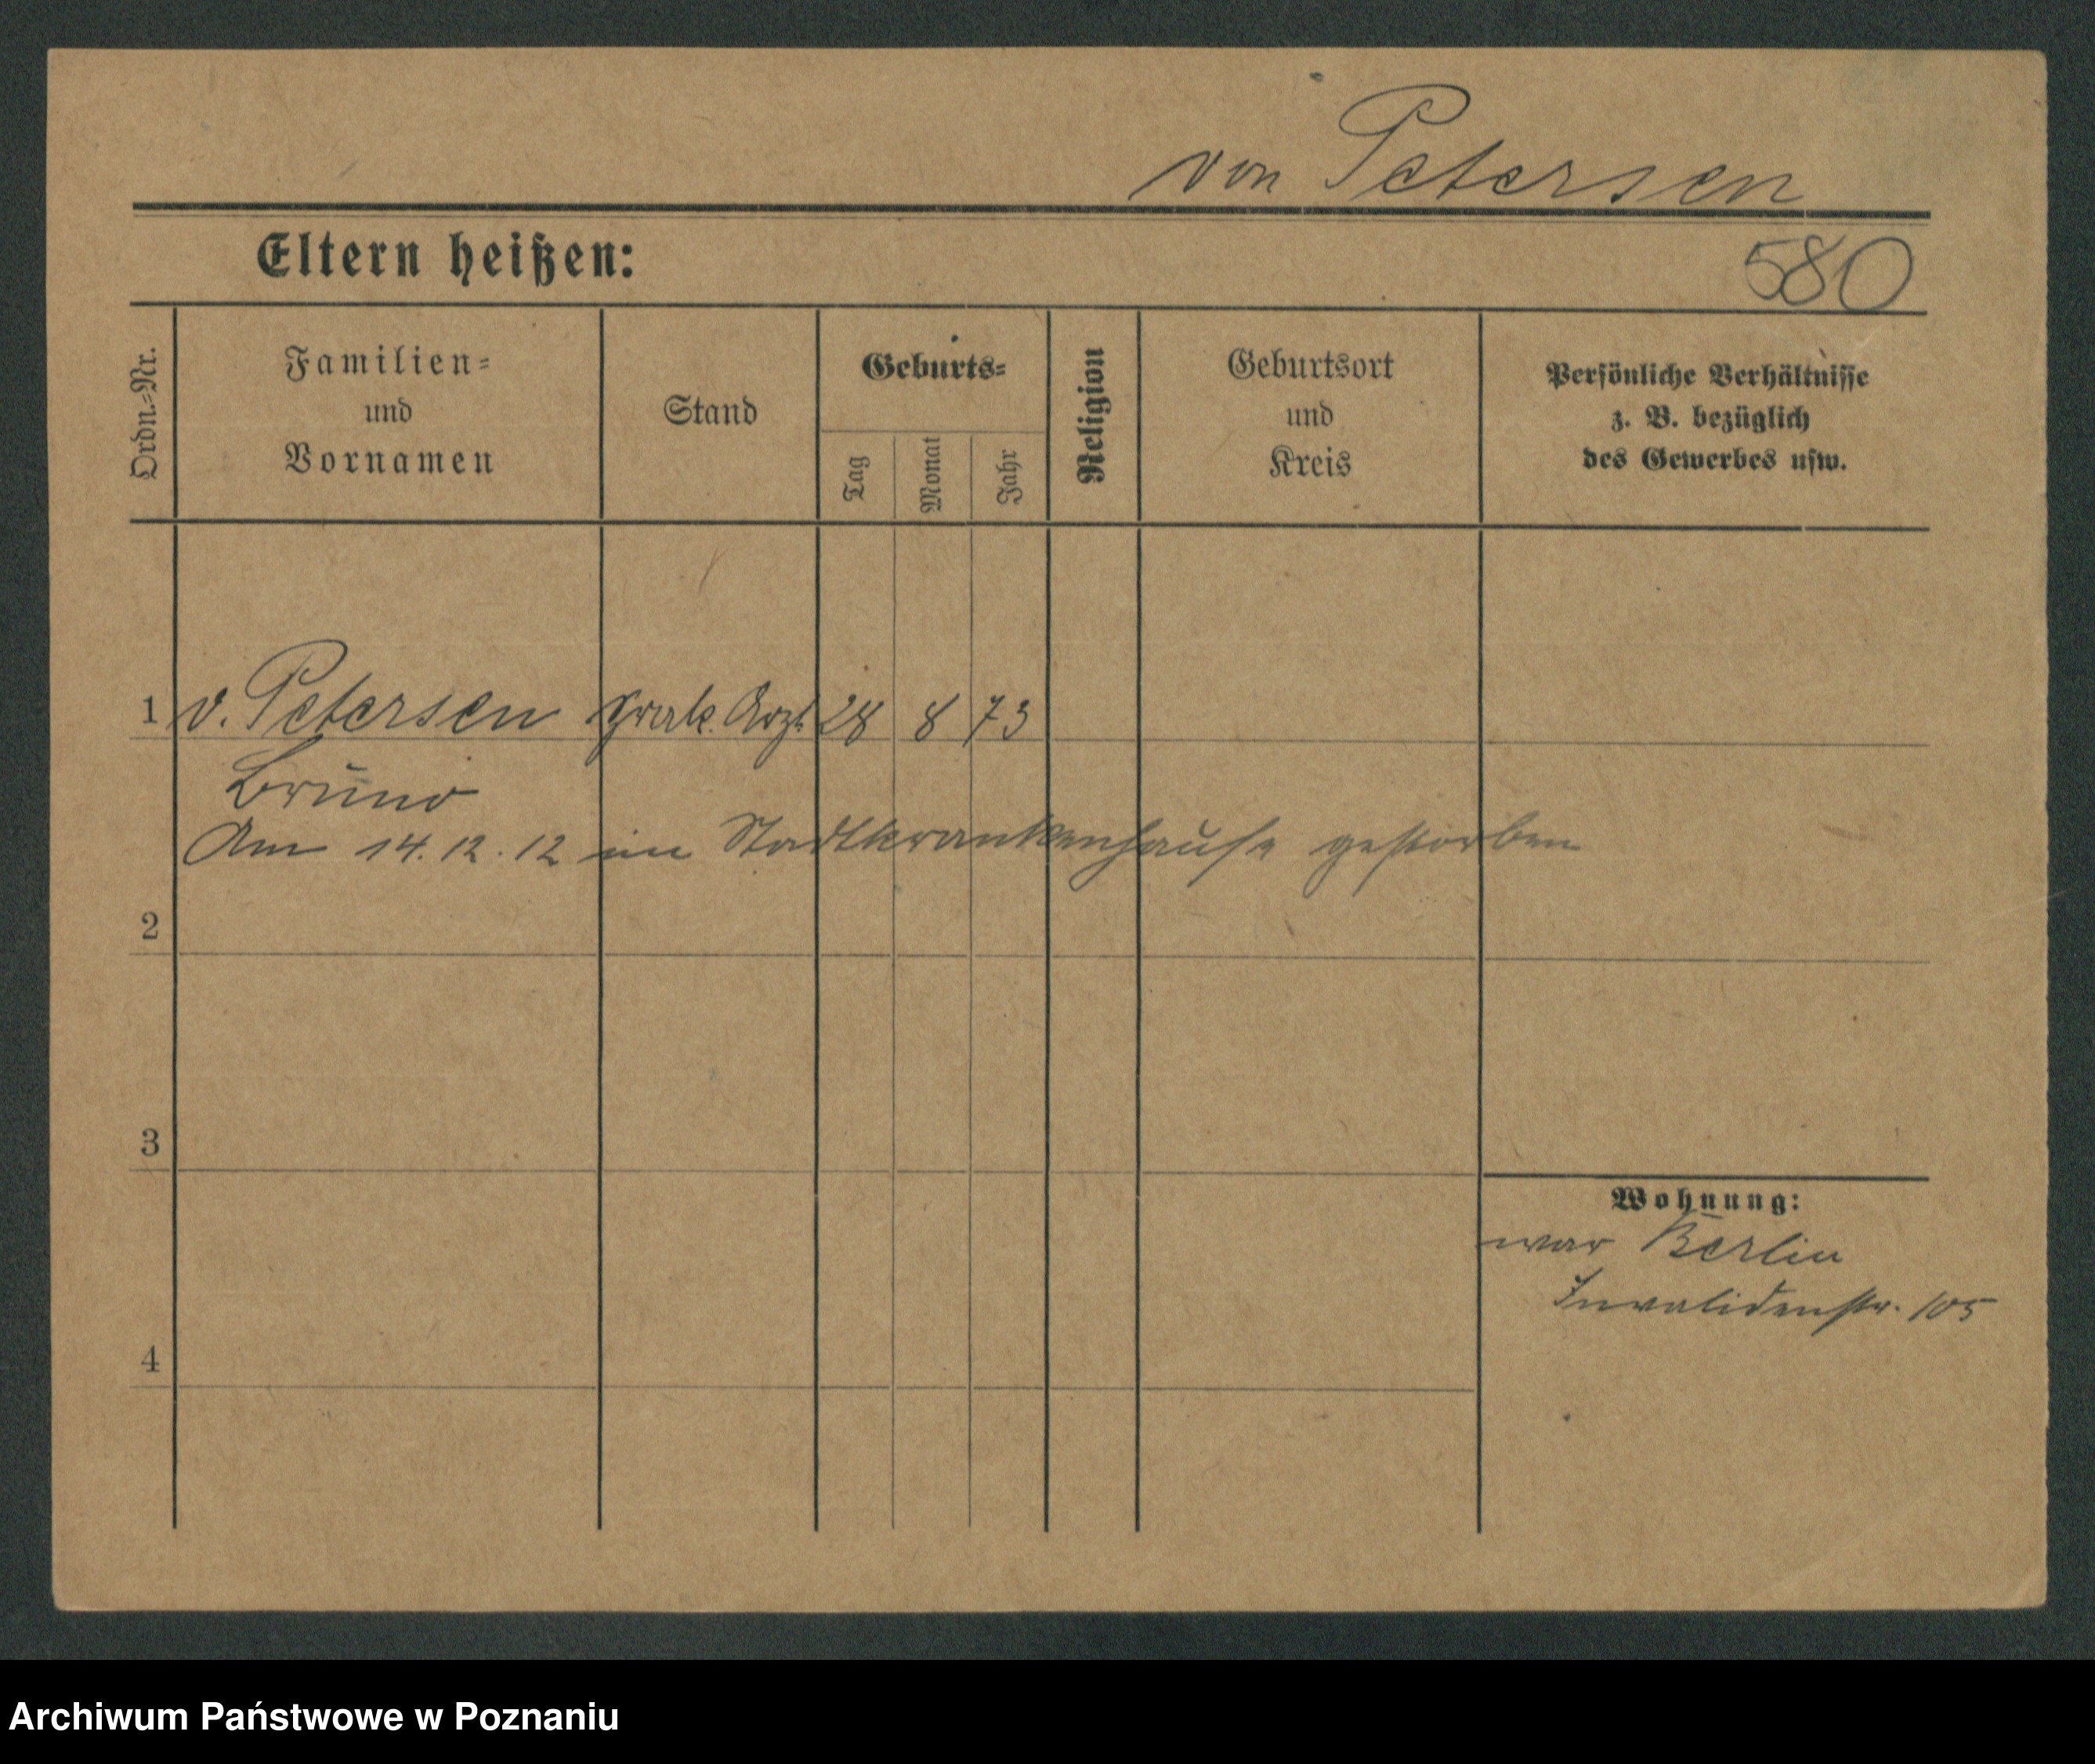 von Petersen
Eltern heißen:
580
Ordn.-Nr.
Familien-
und
Vornamen
Stand
Geburts-
Tag
Monat
Jahr
Religion
Geburtsort
und
Kreis
Persönliche Verhältnisse
z. B. bezüglich
des Gewerbes usw.
1 v. Petersen prak. Arzt 28 8 73
Bruno
Am 14.12.12 im Stadtkrankenhause gestorben
2
3
Wohnung:
war Berlin
Invalidenstr. 105
4
Archiwum Państwowe w Poznaniu